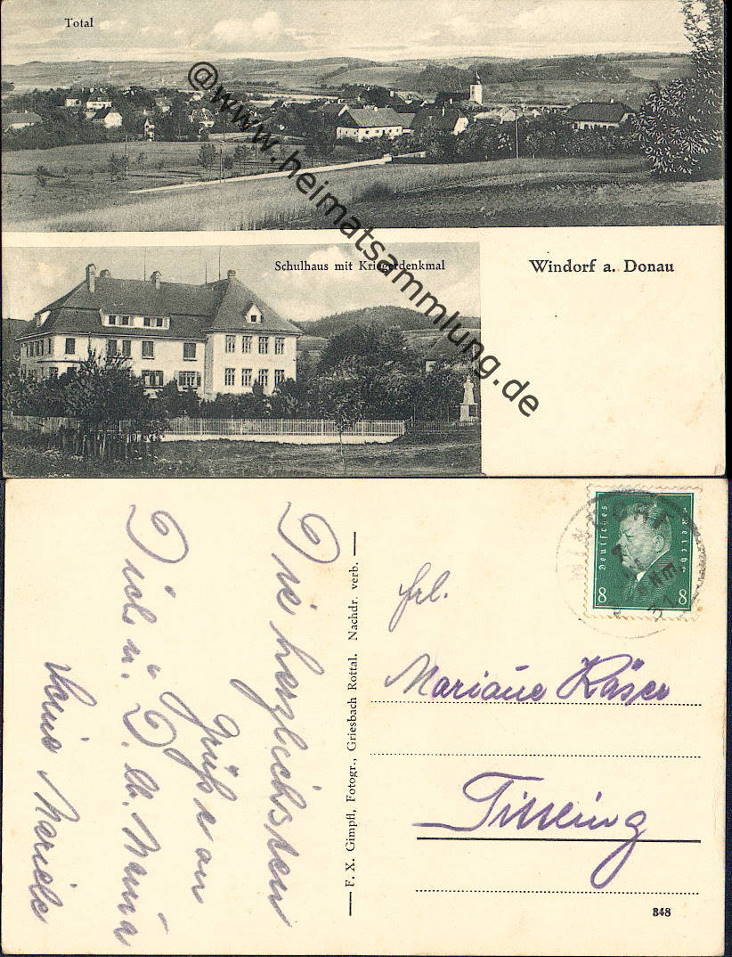 Total
@www.heimatsammlung.de
Schulhaus mit Kriegerdenkmal
Windorf a. Donau
Die herzlichsten
Grüße an
Dich u. D. lb. Mama
F. X. Gimpfl, Fotogr., Griesbach Rottal. Nachdr. verb.
Deutsches Reich
8 8
WINDORF
Frl.
Mariane Käser
Tittling
348